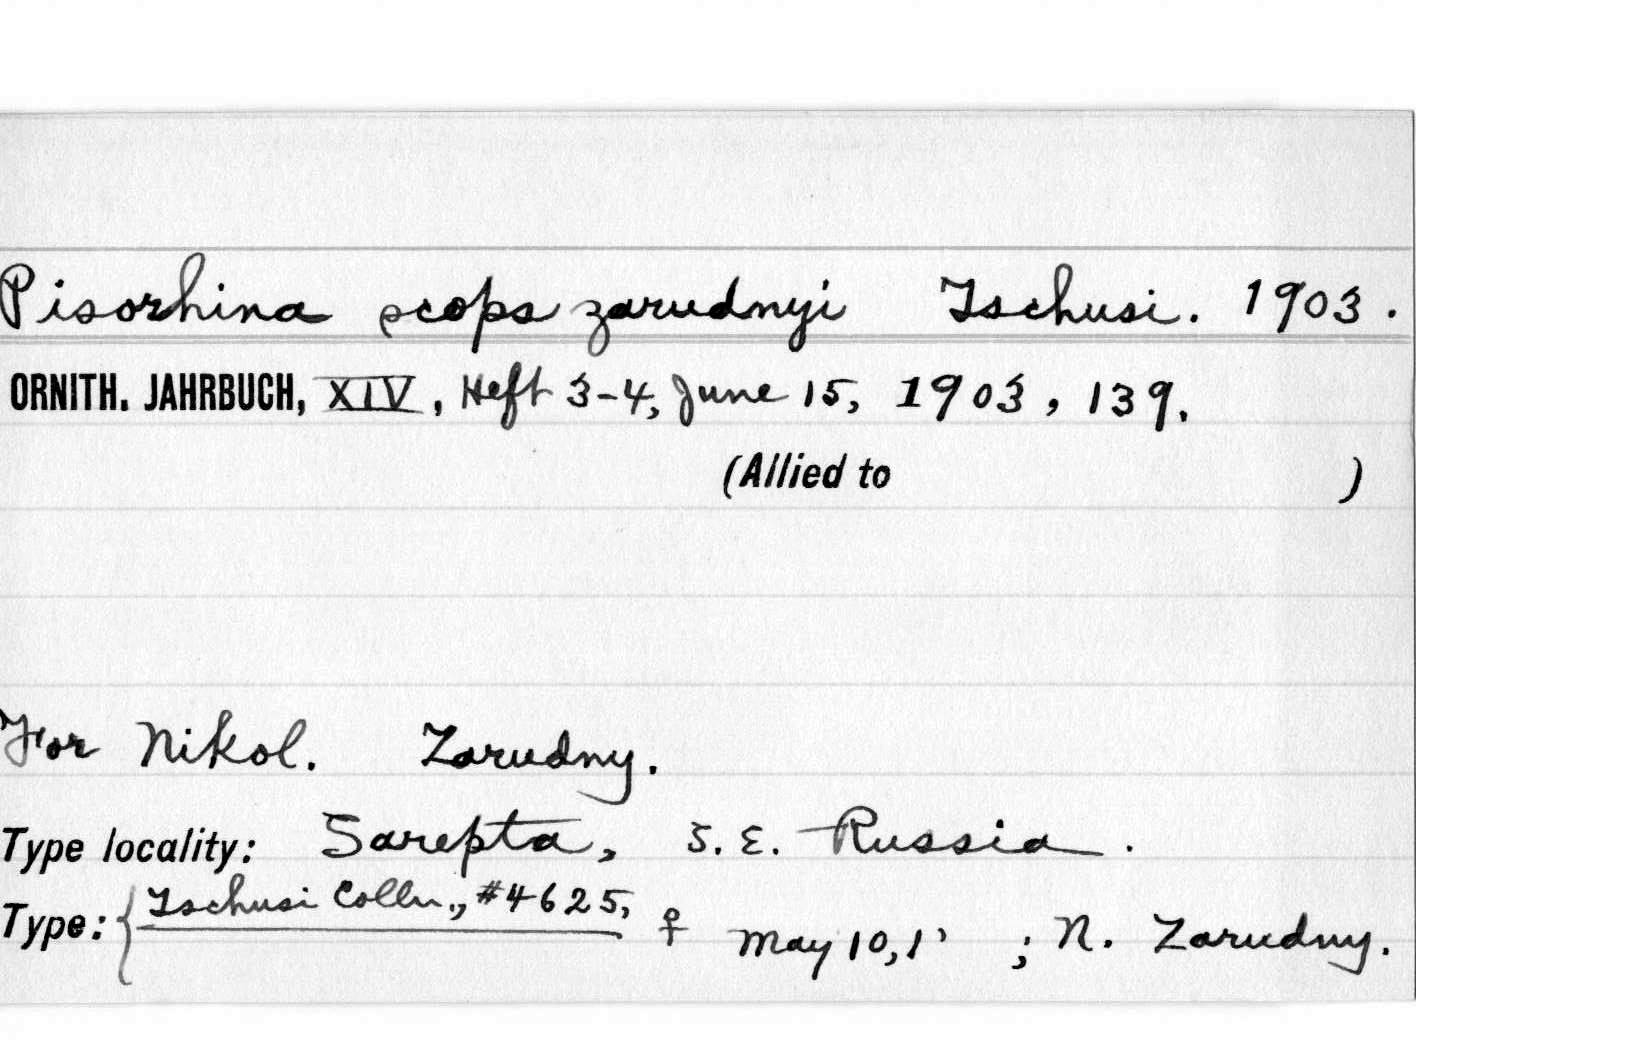 Pisorhina scops zarudnyi Tschusi. 1903.
ORNITH. JAHRBUCH, XIV, Heft 3-4, June 15, 1903, 139.
(Allied to )
For Nikol. Zarudny.
Type locality: Sarepta, S.E. Russia.
Type: { Tschusi Colln., #4625, ♀ May 10, 1' ; N. Zarudny.